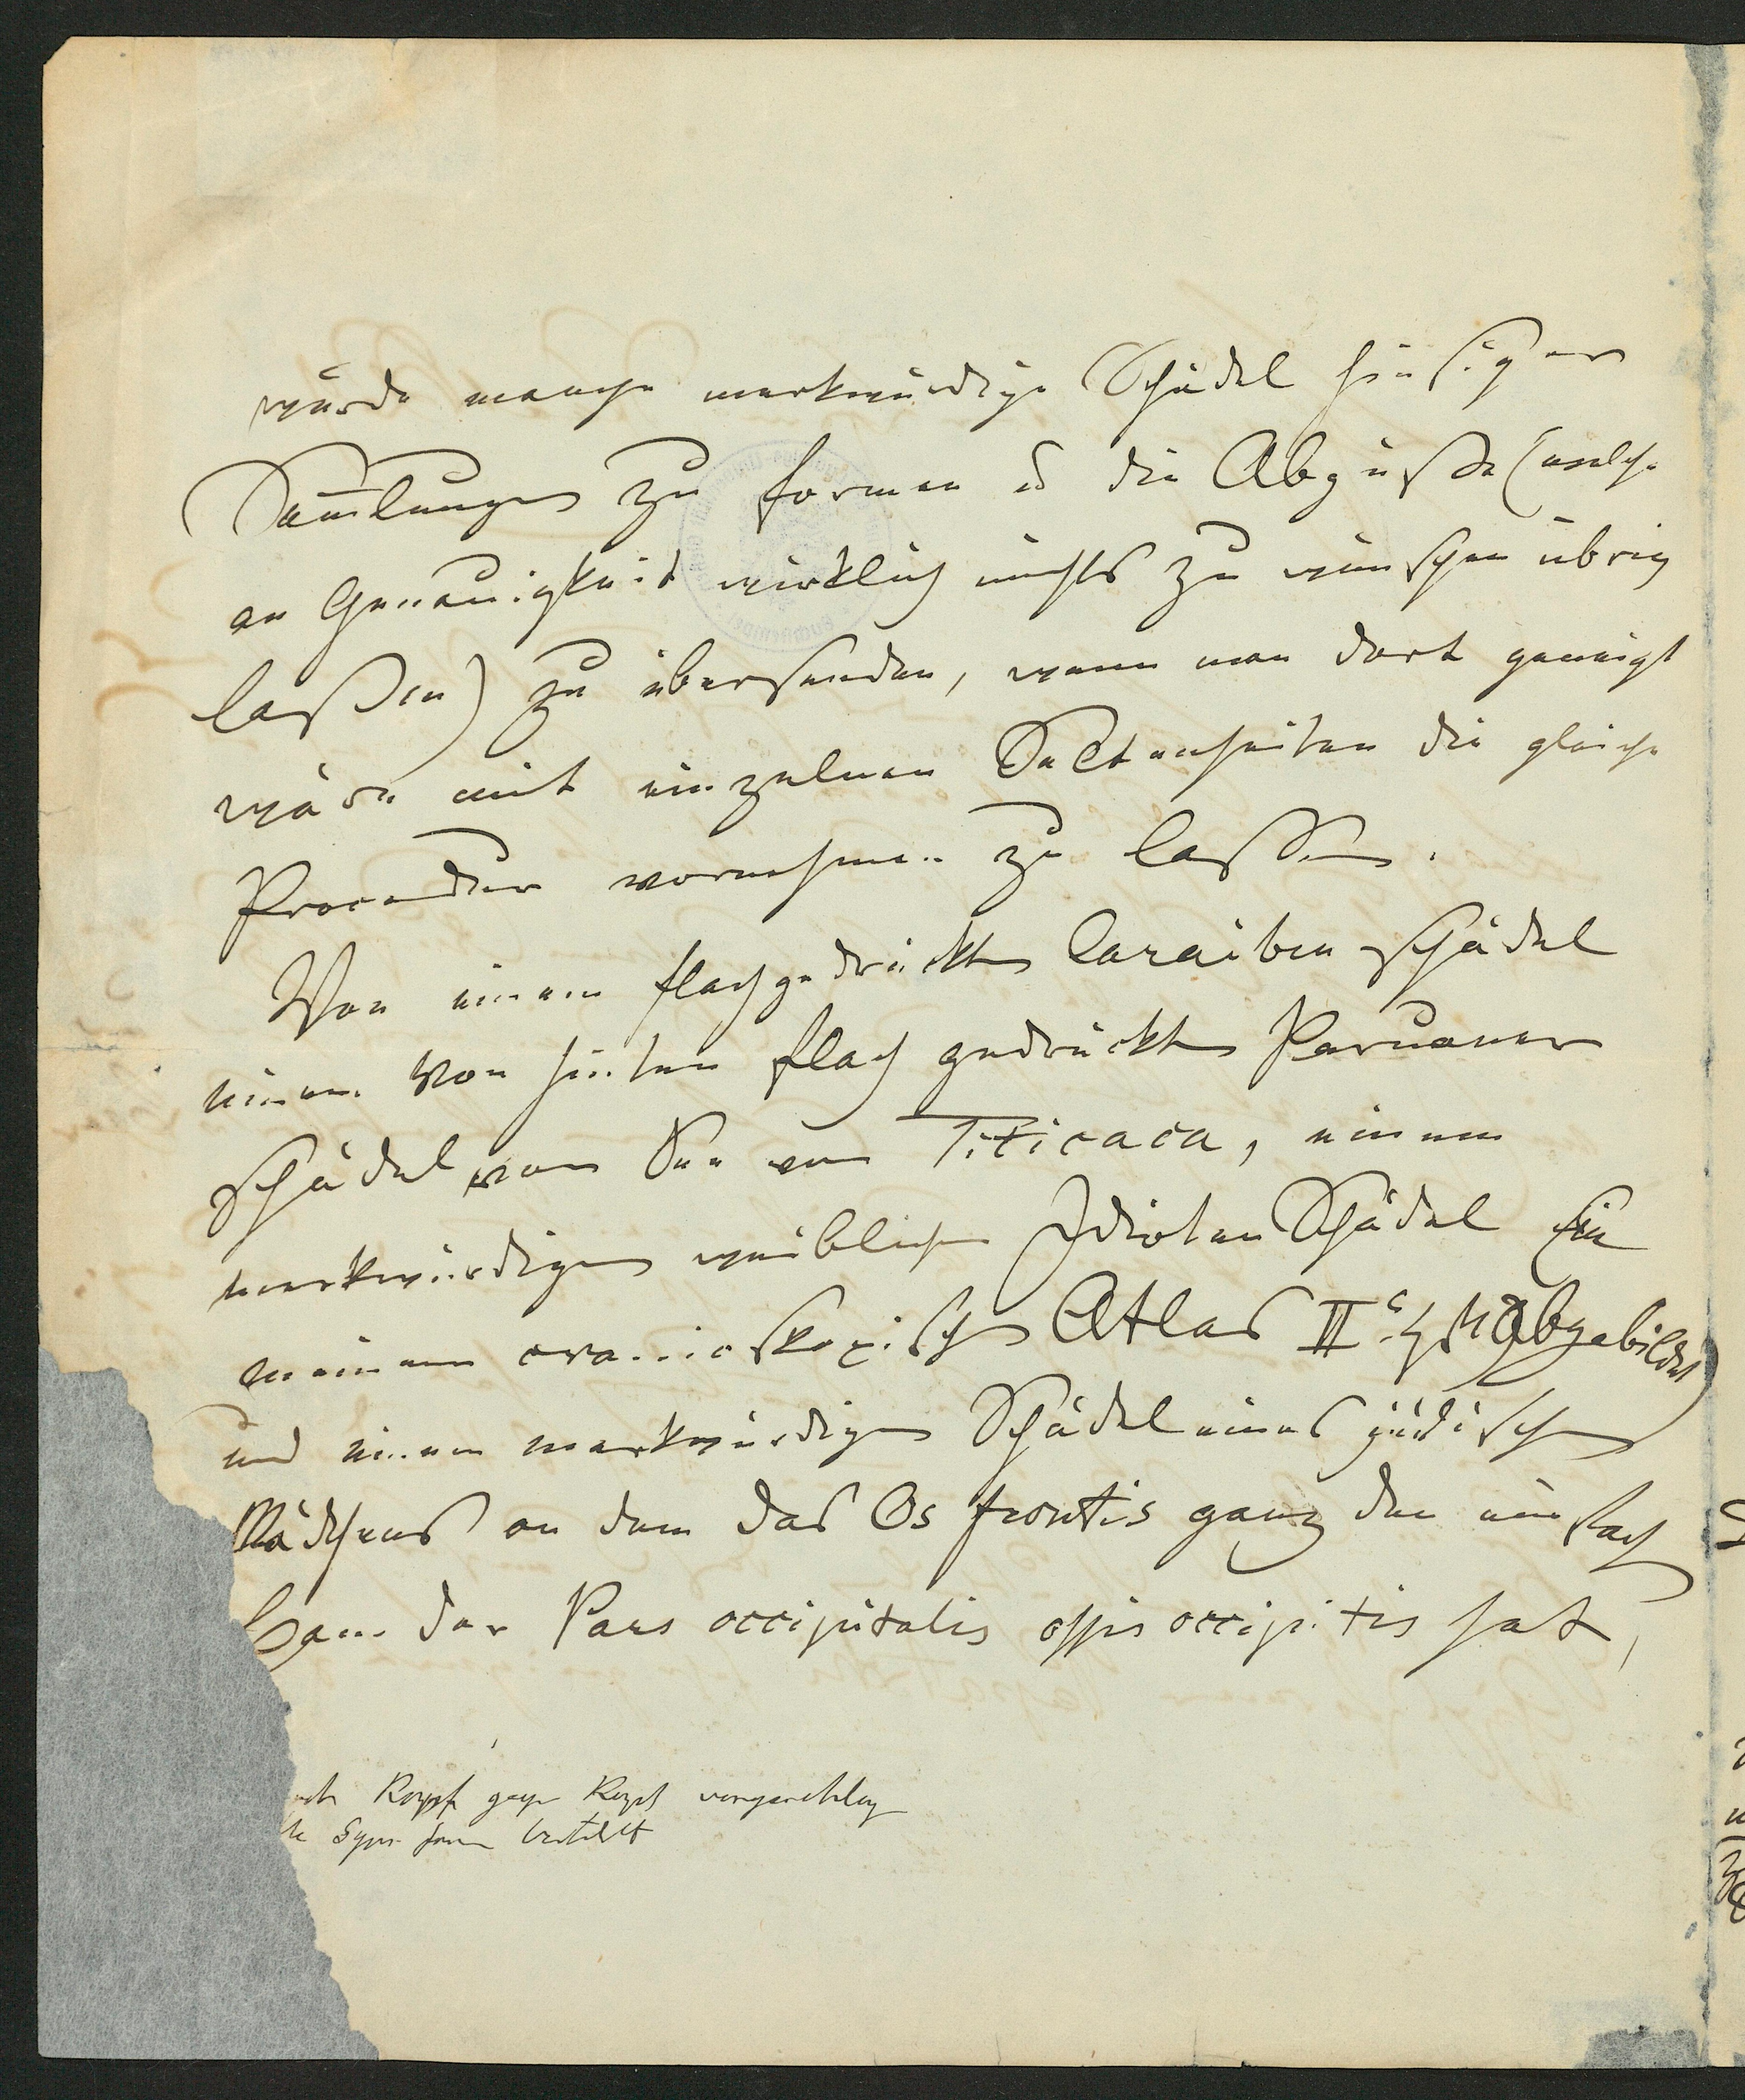 würde manche merkwürdige Schädel hiesiger
Sam̄lungen zu formen u die Abgüsse (welche
an Genauigkeit wirklich nichts zu wünschen übrig
lassen) zu übersenden, wenn man dort geneigt
wäre mit einzelnen Seltenheiten die gleiche
Procedur vornehmen zu lassen.
Von einem flachgedrückten Caraiben schädel
einem von hinten flach gedrückten Peruaner
schädel vom See von Titicaca, einem
merkwürdigen weiblichen Idioten Schädel (in
meinem cranioskopischen Atlas II abgebildet)
und einem merkwürdigen Schädel eines jüdischen
Mädchens an dem das Os frontis ganz den einfach
Bau der Pars occipitalis ossis occipitis hat,
Kopf gegen Kopf vorgeschlag